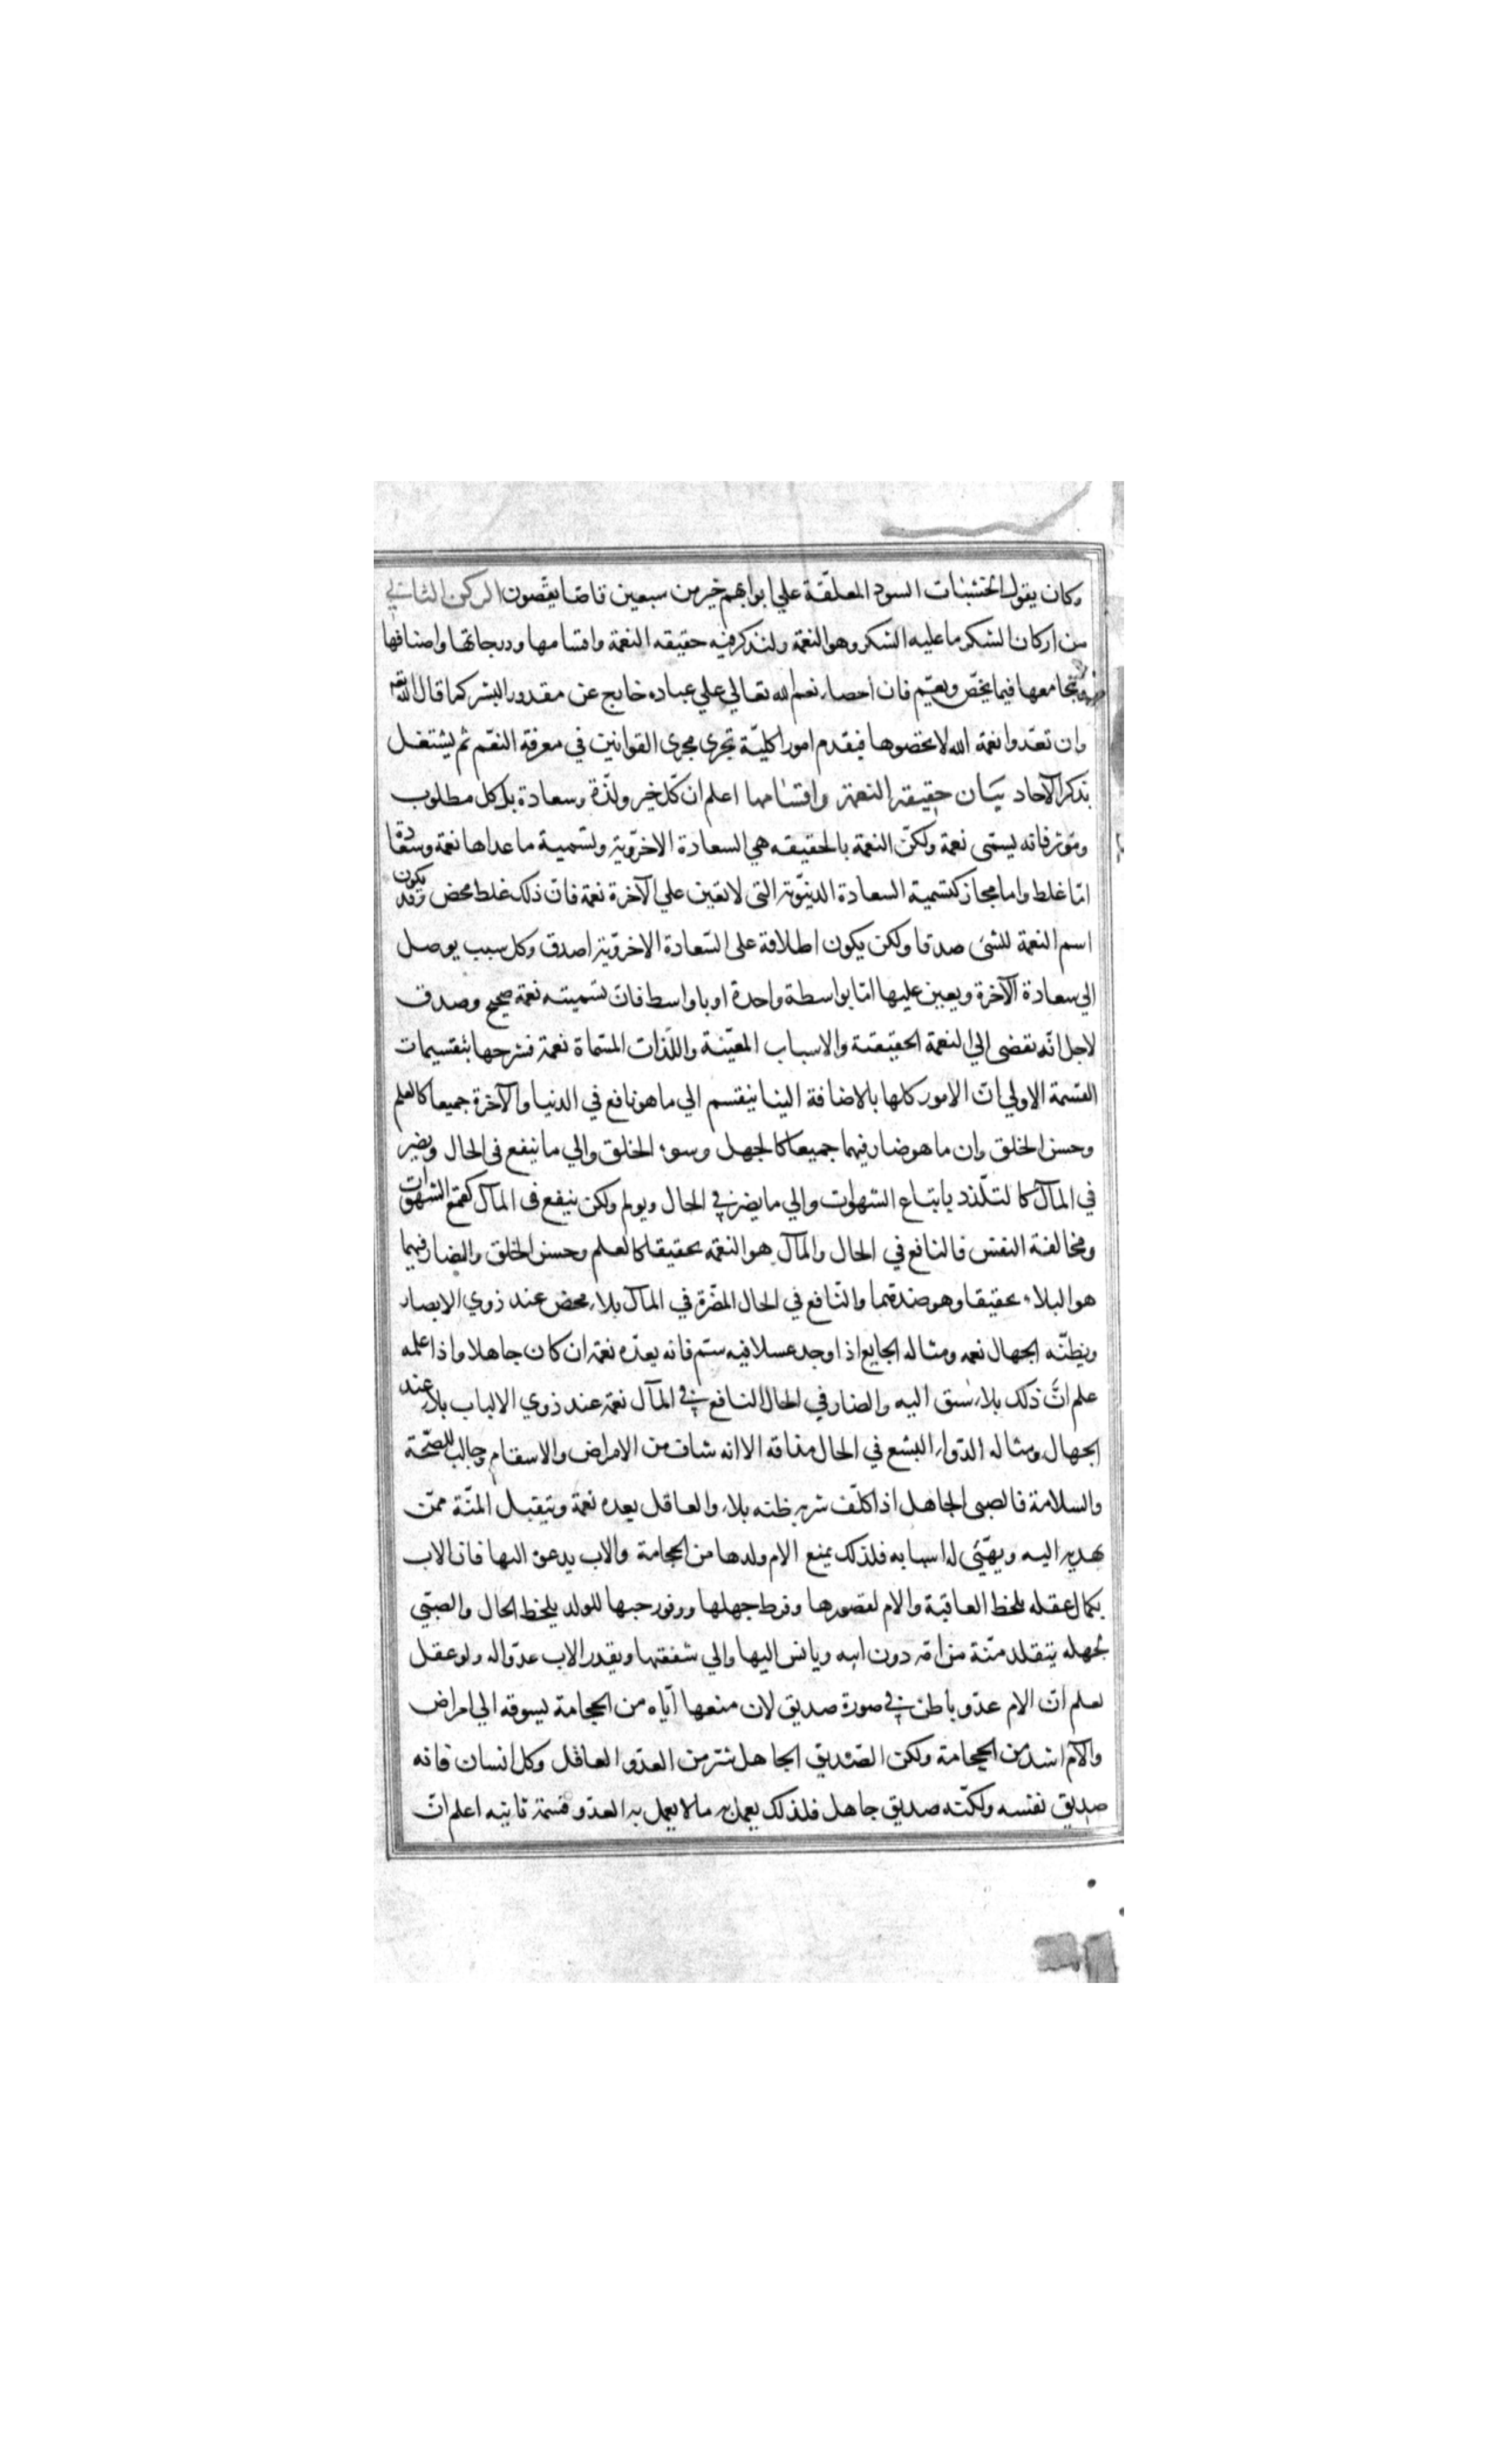 وكان يقول الخشبات السود المعلّقة علي ابوابهم خير من سبعين قاضا يقصّون الركن الثاني
من اركان الشكر ما عليه الشكر وهو النعمة ولنذكر فيه حقيقه النعمة واقسامها ودرجاتها واصنافها
ومجامعها فيما يخصّ ويعمّ فان احصار نعم الله تعالي علي عباده خارج عن مقدور البشر كما قال الله تعا
وان تعدّوا نعمة الله لا تحصوها فيقدم امورا كليّة تجري مجري القوانين في معرفة النعّم ثم يشتغل
بذكر الآحاد بيان حقيقه النعمة واقسامها اعلم ان كلّ خير ولذّة وسعادة بل كل مطلوب
وموثر فانه يسمّى نعمة ولكنّ النعمة بالحقيقه هي السعادة الاخرّويّة وتسمية ما عداها نعمة وسعادة
امّا غلط واما مجاز كتسمية السعادة الدنيّويّة التى لا تعين علي الآخرة نعمة فانّ ذلك غلط محض وقد يكون
اسم النعمة للشئ صدقا ولكن يكون اطلاقه على السّعادة الاخرويّة اصدق وكل سبب يوصل
الي سعادة الآخرة ويعين عليها امّا بواسطة واحدة او باواسط فان تسميته نعمة صحيح وصدق
لاجل انّه نفضى الي النعمة الحقيقية والاسباب المعيّنة واللذات المسّماة نعمة فشرحها بتقسيمات
القسمة الاولي انّ الامور كلها بالاضافة الينا ينقسم الي ما هو نافع في الدنيا والآخرة جميعا كالعلم
وحسن الخلق وان ما هو ضار فيهما جميعا كالجهل وسوء الخلق والي ما ينفع فى الحال ويضر
في المآل كا لتلّذذ باتباع الشهوات والي ما يضر في الحال ويولم ولكن ينفع فى المآل كقمع الشهوات
ومخالفة النفس فالنافع في الحال والمآل هو النقمه تحقيقا كالعلم وحسن الخلق والضار فيهما
هو البلاء تحقيقا وهو ضدهما والنّافع في الحال المضّرة في المآل بلاء محض عند ذوي الابصار
ويظنّه الجهال نعمه ومثاله الجايع اذا وجد عسلا فيه ستم فانه يعدّه نعمة ان كان جاهلا واذا علمه
علم انّ ذلك بلاء سبق اليه والضار في الحال النافع في المآل نعمة عند ذوي الالباب بلاء عند
الجهال ومثاله الدّواء البشع في الحال مذاقه الا انه شاف من الامراض والاسقام وجالب للصّحة
والسلامة فالصبى الجاهل اذا كلّف شربه ظنه بلاء والعاقل يعده نعمة ويتقبل المنّة ممّن
يهديه اليه ويهّيئى له اسبابه فلذلك يمنع الام ولدها من الحجامة والاب يدعوه اليها فان الاب
بكمال عقله يلحظ العاقبة والام لقصورها وفرط جهلها ووفور حبها للولد يلحظ الحال والصبّى
بجهله يتقلد منّة من امّه دون ابيه ويانس اليها والي شفقتها ويقدر الاب عدّوا له ولو عقل
لعلم انّ الام عدّو باطن في صورة صديق لان منعها ايّاه من الحجامة يسوقه الي امراض
والآم اشد من الحجامة ولكن الصّديق الجاهل شرّ من العدّو العاقل وكل انسان فانه
صديق نفسه ولكنّه صديق جاهل فلذلك يعمل به ما لا يعمل به العدّو قسمة ثانيه اعلم انّ